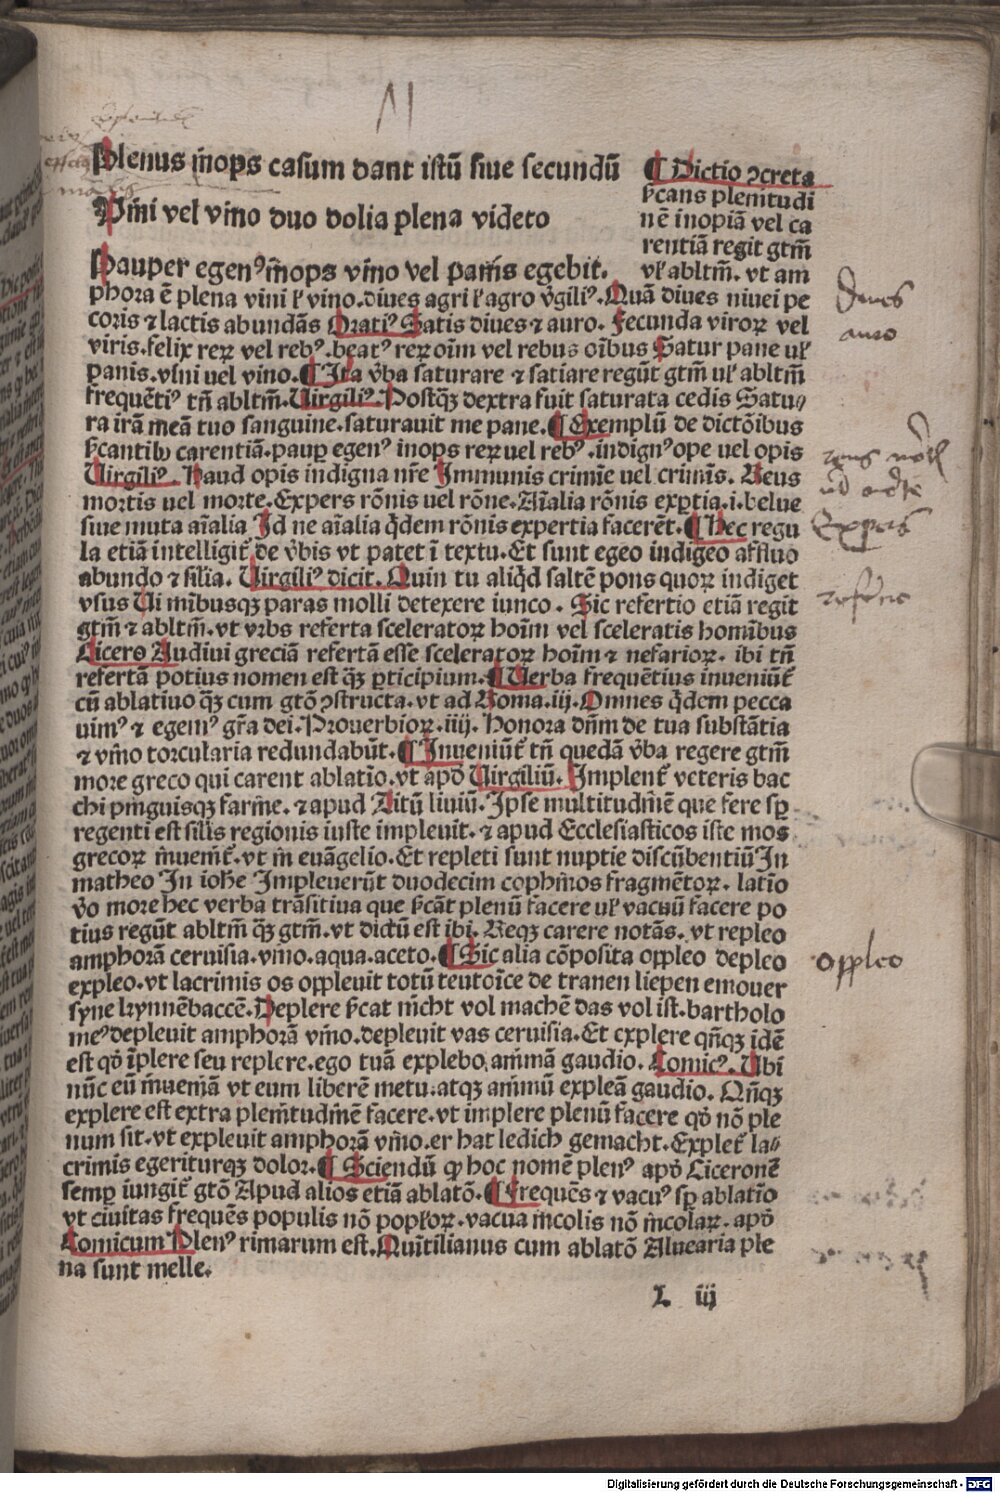 Plenus inops casum dant istū siue secundū
Vini vel vino duo dolia plena videto
Pauper egenꝰ inops vino vel panis egebit.
¶ Dictio ↄcreta
ẜcans plenitudi
nē inopiā vel ca
rentiā regit gtm̄
vꝉ abltm̄. vt am
phora ē plena vini ꝉ vino. diues agri ꝉ agro v̓giliꝰ. Quā diues niuei pe
coris ⁊ lactis abundās Oratiꝰ Satis diues ⁊ auro. Fecunda viroꝝ vel
viris. felix reꝝ vel rebꝰ. beatꝰ reꝝ oīm vel rebus oībus Satur pane uꝉ
panis. vini uel vino. ¶ Ita v̓ba saturare ⁊ satiare regūt gtm̄ uꝉ abltm̄
frequētiꝰ tn̄ abltm̄. Virgiliꝰ. Postqꝫ dextra fuit saturata cedis Satu⸗
ra irā meā tuo sanguine. saturauit me pane. ¶ Exemplū de dictōibus
ẜcantibꝰ carentiā. paup̲ egenꝰ inops reꝝ uel rebꝰ. indignꝰ ope uel opis
Virgiliꝰ. Haud opis indigna nr̄e Immunis crimīe vel crimīs. Reus
mortis uel morte. Expers rōnis uel rōne. Aīalia rōnis exꝑtia. i. belue
siue muta aīalia Id ne aīalia q̄dem rōnis expertia facerēt. ¶ Hec regu
la etiā intelligit̓ de v̓bis vt patet ī textu. Et sunt egeo indigeo affluo
abundo ⁊ silia. Virgiliꝰ dicit. Quin tu aliqd̓ saltē pons quoꝝ indiget
vsus Vi mībusqꝫ paras molli detexere iunco. Sic refertio etiā regit
gtm̄ ⁊ abltm̄. vt vrbs referta sceleratoꝝ hoīm vel sceleratis homībus
Cicero Audiui greciā refertā esse sceleratoꝝ hoīm ⁊ nefarioꝝ. ibi tn̄
refertā potius nomen est qꝫ ꝑticipium. ¶ Verba frequētius inueniūt̓
cū ablatiuo qꝫ cum gtō ↄstructa. vt ad Roma. iij. Omnes q̄dem pecca
uimꝰ ⁊ egemꝰ gr̄a dei. Prouerbioꝝ. iiij. Honora dn̄m de tua substātia
⁊ vīno torcularia redundabūt. ¶ Inueniūt̓ tn̄ quedā v̓ba regere gtm̄
more greco qui carent ablatīo. vt apd̓ Virgiliū. Implent̓ veteris bac
chi pinguisqꝫ farīne. ⁊ apud Titū liuiū. Ipse multitudinē que fere sꝑ
regenti est silis regionis iuste impleuit. ⁊ apud Ecclesiasticos iste mos
grecoꝝ inuenit̓. vt in euāgelio. Et repleti sunt nuptie discūbentiū In
matheo In ioh̄e Impleuerūt duodecim cophinos fragmētoꝝ. latīo
v̓o more hec verba trāsitiua que ẜcāt plenū facere uꝉ vacuū facere po
tius regūt abltm̄ qꝫ gtm̄. vt dictū est ibi. Reqꝫ carere notās. vt repleo
amphorā ceruisia. vīno. aqua. aceto. ¶ Sic alia cōposita oppleo depleo
expleo. vt lacrimis os oppleuit totū teutoīce de tranen liepen emouer
syne kynnēbaccē. Deplere ẜcat nicht vol machē das vol ist. bartholo
meꝰ depleuit amphorā vīno. depleuit vas ceruisia. Et explere qn̄qꝫ idē
est qd̓ īplere seu replere. ego tuā explebo animā gaudio. Comicꝰ. Vbi
nūc eū inueniā vt eum liberē metu. atqꝫ animū expleā gaudio. Qn̄qꝫ
explere est extra plenitudinē facere. vt implere plenū facere qd̓ nō ple
num sit. vt expleuit amphorā vīno. er hat ledich gemacht. Explet̓ la⸗
crimis egeriturqꝫ dolor. ¶ Sciendū ꝙ hoc nomē plenꝰ apd̓ Ciceronē
semꝑ iungit̓ gtō Apud alios etiā ablatō. ¶ Frequēs ⁊ vacuꝰ sꝑ ablatīo
vt ciuitas frequēs populis nō popꝉoꝝ. vacua incolis nō incolaꝝ. apd̓
Comicum Plenꝰ rimarum est. Quītilianus cum ablatō Aluearia ple
na sunt melle.
L iij
diues
auro
Expers
oppleo
Digitalisierung gefördert durch die Deutsche Forschungsgemeinschaft - DFG